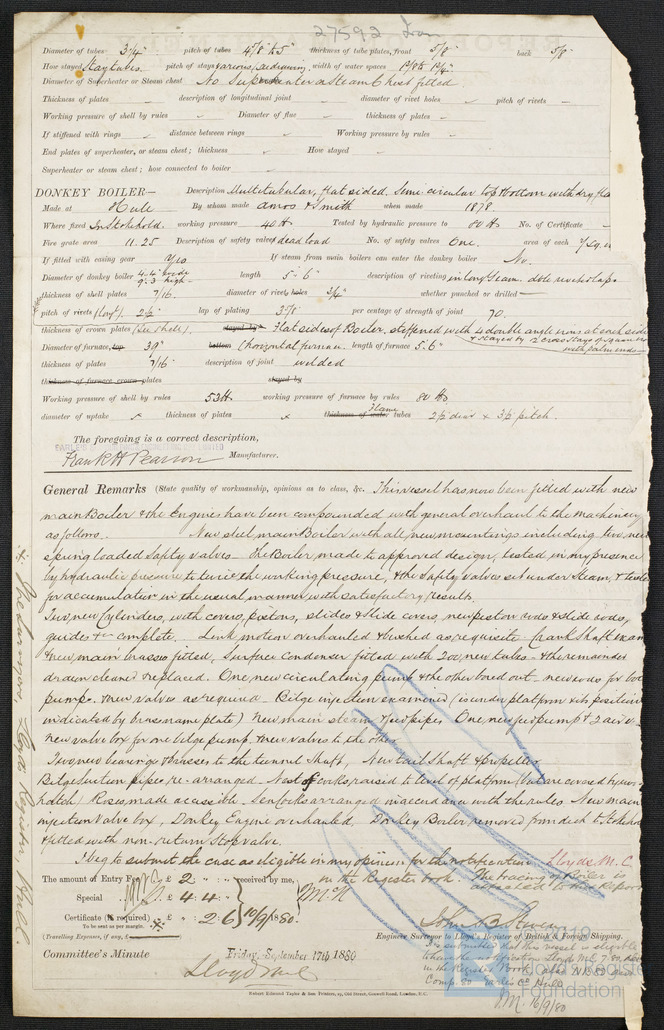 27592 Lon
Diameter of tubes 3¼" pitch of tubes 4⅞" to 5" thickness of tube plates, front 5/8" back 5/8"
How stayed Stay tubes. pitch of stays various, as drawing width of water spaces
Diameter of Superheater or Steam chest No Superheater or Steam Chest fitted.
Thickness of plates description of longitudinal joint diameter of rivet holes pitch of rivets
Working pressure of shell by rules Diameter of flue thickness of plates
If stiffened with rings distance between rings Working pressure by rules
End plates of superheater, or steam chest; thickness How stayed
Superheater or steam chest; how connected to boiler
DONKEY BOILER— Description Multitubular, flat sided, Semi-circular top & bottom with dry
Made at Hull By whom made Amos & Smith when made 1878
Where fixed In Stokehold. working pressure 40 lb Tested by hydraulic pressure to 80 lb No. of Certificate
Fire grate area 11.25 Description of safety valves dead load No. of safety valves One. area of each
If fitted with easing gear Yes If steam from main boilers can enter the donkey boiler No.
Diameter of donkey boiler 4'.4" wide 9'.3" high length 5'.6" description of riveting in long'l seam. dble riv'd laps
thickness of shell plates 7/16. diameter of rivet holes 3/4" whether punched or drilled
pitch of rivets (long'l). 2½" lap of plating 3⅞" per centage of strength of joint 70.
thickness of crown plates (See shell). stayed by Flat sides of Boiler, stiffened with double angle irons at each side
& stayed by 12 cross stays of
with palm ends
Diameter of furnace, top 39" bottom (horizontal furnace. length of furnace 5'.6"
thickness of plates 7/16" description of joint welded
thickness of furnace crown plates stayed by
Working pressure of shell by rules 53 lb working pressure of furnace by rules 80 lbs
diameter of uptake × thickness of plates × thickness of water tubes Flame 2½ diar × 3½ pitch.
The foregoing is a correct description,
Frank H Pearson Manufacturer.
General Remarks (State quality of workmanship, opinions as to class, &c. This vessel has now been fitted with new
main Boiler & the Engines have been compounded with general overhaul to the machinery
as follows. New steel main Boiler with all new mountings including two new
spring loaded Safety valves — The Boiler, made to approved design, tested in my presence
by hydraulic pressure to twice the working pressure, & the Safety Valves set under Steam, & tested
for accumulation in the usual manner with satisfactory results.
Two new Cylinders, with covers, pistons, slides & Slide covers, new piston rods & slide rods,
guides &c complete. Link motion overhauled & bushed as requisite. Crank shaft exam
& new main brasses fitted, Surface Condenser fitted with 200 new tubes & the remainder
drawn cleaned & replaced. One new circulating pump & the other bored out
pumps. & new valves as required. Bilge injection examined (is under platform & its position
indicated by brass name plate) New main steam & feed pipes One new feed pump & 2 air
new valve box for one bilge pump & new valves to the other
Two new bearings & brasses to the tunnel Shaft, New tail Shaft & Propeller
Bilge Suction pipes re-arranged. cocks raised to level of platform (but are covered by
hatch) Roses made accessible. Sea cocks arranged in accordance with the rules New main
injection Valve box, Donkey Engine overhauled. Donkey Boiler removed from deck to Stokehold
& fitted with non-return Stop valve.
I beg to submit the case as eligible in my opinion for the notification Lloyds M. C
in the Register book. The tracing of Boiler is
attached to this Report
The amount of Entry Fee £ 2 : : received by me,
Special £ 4 : 4 :
Certificate (if required) £ : 2 : 6 10/9/1880.
To be sent as per margin.
(Travelling Expenses, if any, £ )
John B Stevens
Engineer Surveyor to Lloyd's Register of British & Foreign Shipping.
Committee's Minute Friday, September 17th 1880
Lloyd's M.C
It is submitted that this vessel is eligible
to have the notification Lloyd's M.C. 7.80.
in the Register Book also N.B. 80
Comp. 80
16/9/80
Robert Edmund Taylor & Son Printers, 19, Old Street, Goswell Road, London, E.C.
The Surveyor, Lloyds Register Hull.
© 2019
Lloyd's Register
Foundation